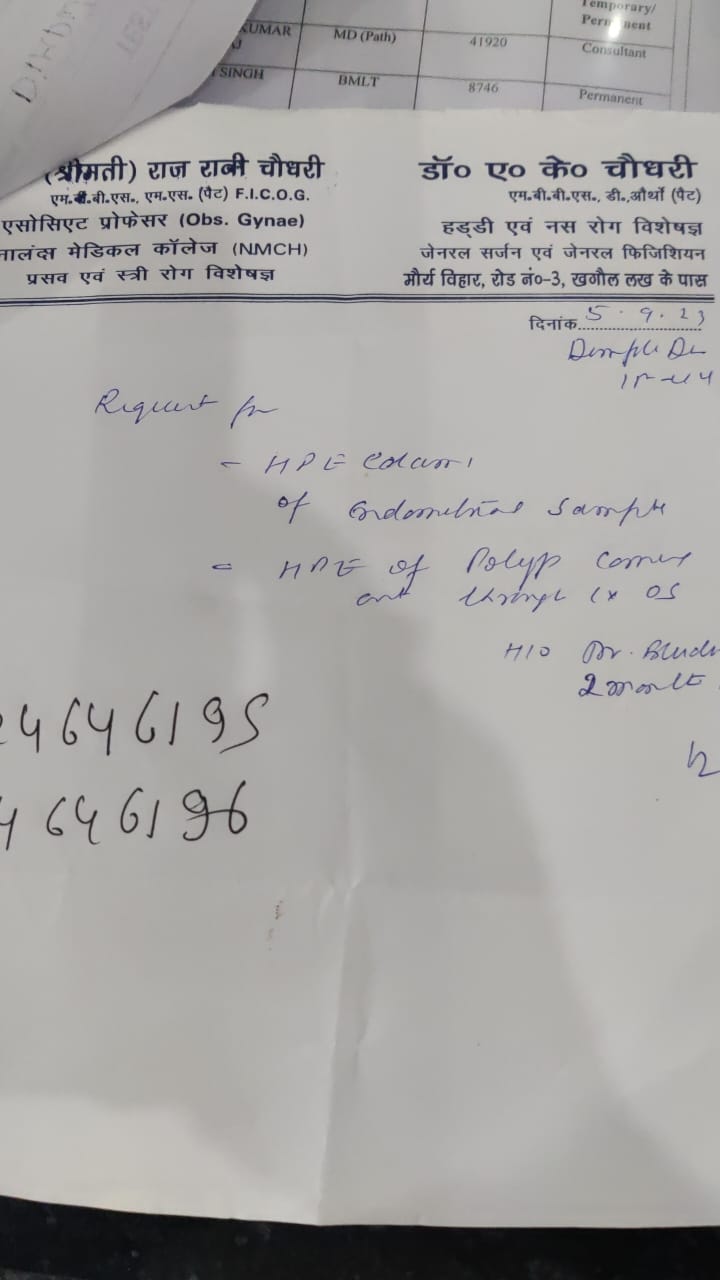 Temporary/
Permanent
KUMAR
MD (Path)
41920
Consultant
SINGH
BMLT
8746
Permanent
(श्रीमती) राज रानी चौधरी
एम.बी.बी.एस., एम.एस. (पैट) F.I.C.O.G.
एसोसिएट प्रोफेसर (Obs. Gynae)
नालंदा मेडिकल कॉलेज (NMCH)
प्रसव एवं स्त्री रोग विशेषज्ञ
डॉ० ए० के० चौधरी
एम.बी.बी.एस., डी.,और्थो (पैट)
हड्डी एवं नस रोग विशेषज्ञ
जेनरल सर्जन एवं जेनरल फिजिशियन
मौर्य विहार, रोड नं०-3, खगौल लख के पास
दिनांक 5.9.23
Dimple
Request for
- HPE
of Endometrial Sample
= HPE of Polyp
out through Cx OS
H/O
2 month
4646195
4646196